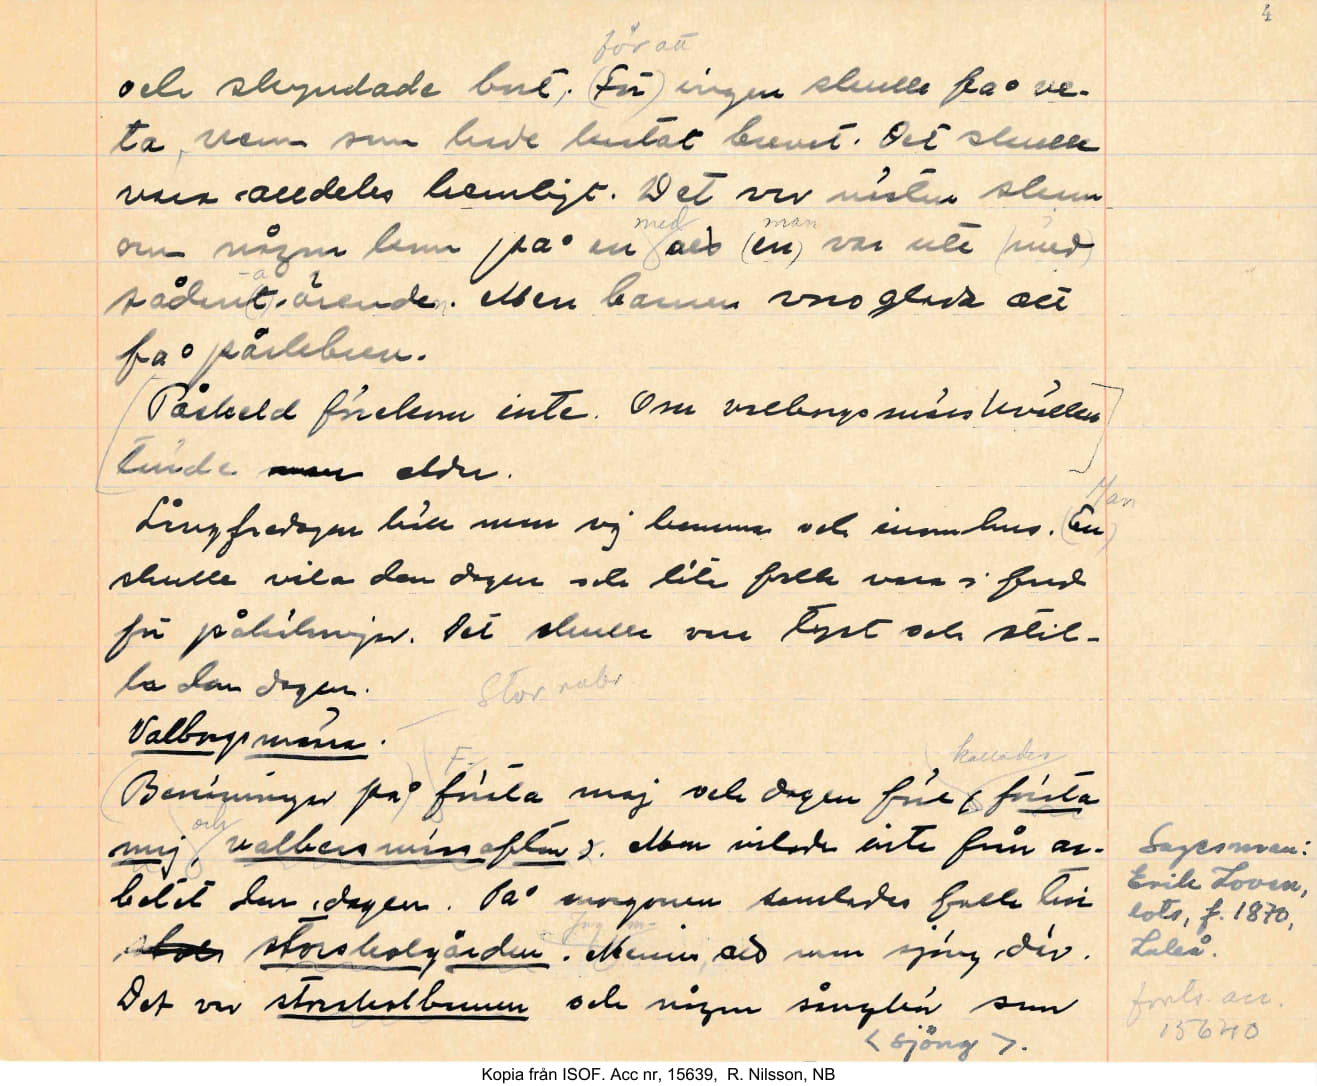 4
för att
och skyndade bort, (För) ingen skulle få ve-
ta, vem som hade kastat brevet. Det skulle
vara alldeles hemligt. Det var nästan skam
med man
om någon kom på en att (en) var ute (med)
a
sådant ärende. Men barnen voro glada att
få påskbrev.
[Påskeld förekom inte. Om valborgsmässkvällen
tände man eldar.]
Man
Långfredagen höll man sig hemma och inomhus. (En)
skulle vila den dagen och låta folk vara i fred
för påhälsningar. Det skulle vara tyst och stil-
la den dagen.
Stor rubr
Valborgsmässa.
F kallades
(Benämningar på) första maj och dagen före första
och
maj, valborsmässafton. Man vilade inte från ar-
betet den dagen. På morgonen samlades folk till
storskolgården. Menar att man sjöng där.
Det var storskolbarnen och någon sångkör som
< sjöng >.
Sagesman:
Erik Lovén,
lots, f. 1870,
Luleå.
forts. acc.
15640
Kopia från ISOF. Acc nr, 15639, R. Nilsson, NB